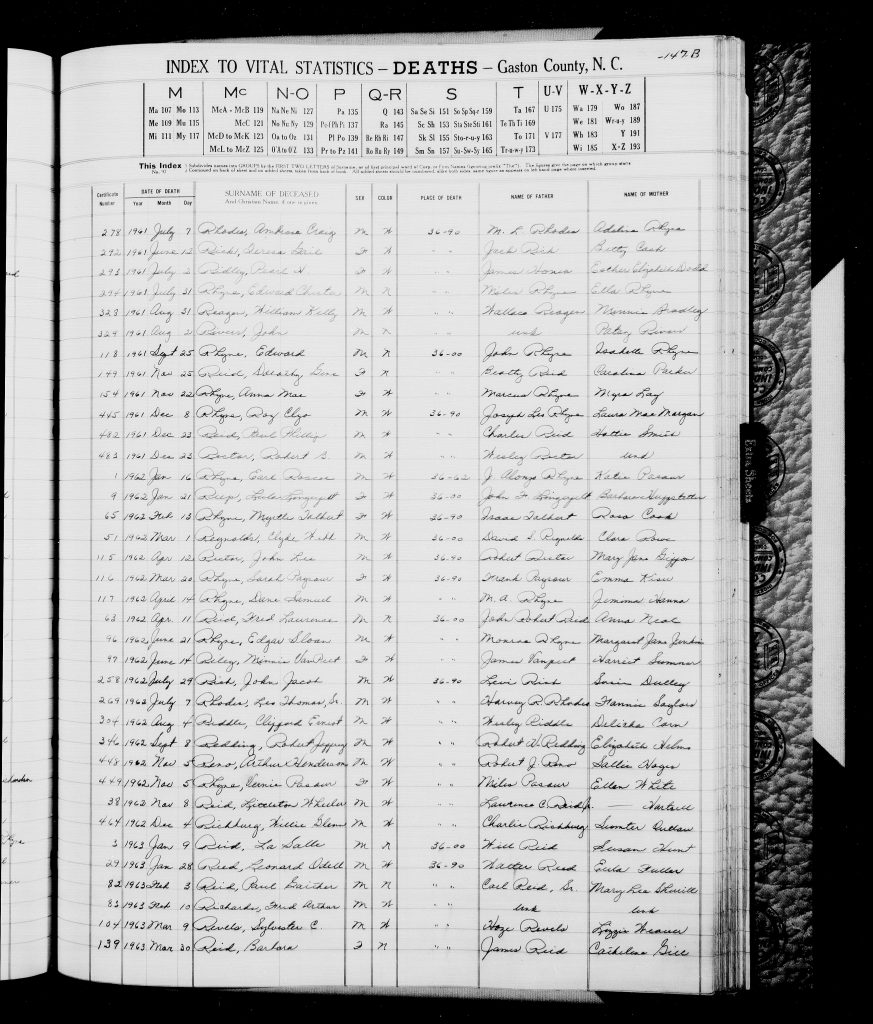 -147-B
INDEX TO VITAL STATISTICS – DEATHS – Gaston County, N. C.
M Mc N-O P Q-R S T U-V W-X-Y-Z
Ma 107 Mo 113 McA - McB 119 Na Ne Ni 127 Pa 135 Q 143 Sa Se Si 151 So Sp Sq-r 159 Ta 167 U 175 Wa 179 Wo 187
Me 109 Mu 115 McC 121 No Nu Ny 129 Pe-(Ph) Pi 137 Ra 145 Sta Ste Sti 161 Te Th Ti 169 We 181 Wr-u-y 189
Mi 111 My 117 McD to McK 123 Oa to Oz 131 Pl Po 139 Re Rh Ri 147 Sk Sl 155 Sto-r-u-y 163 To 171 V 177 Wh 183 Y 191
McL to McZ 125 O'A to O'Z 133 Pr to Pz 141 Ro Ru Ry 149 Sm Sn 157 Su-Sw-Sy 165 Tr-u-w-y 173 Wi 185 X-Z 193
This Index
Certificate Number DATE OF DEATH Year Month Day SURNAME OF DECEASED And Christian Name, if one is given SEX COLOR PLACE OF DEATH NAME OF FATHER NAME OF MOTHER
278 1961 July 7 Rhodes, Ambrose Craig M W 36-90 M. L. Rhodes Adeline Rhyne
292 1961 June 12 Rick, Gail F W " " Jack Rick Betty Cash
293 1961 July 2 Ridley, Pearl H F W " " James Esther Elizabeth Dodd
294 1961 July 31 Rhyne, Edward M N " " Miles Rhyne Ella Rhyne
323 1961 Aug 31 Reagan, William Kelly M W " " Wallace Reagan Minnie Bradley
329 1961 Aug 2 John M N " " unk Patsy
118 1961 Sept 25 Rhyne, Edward M N 36-00 John Rhyne Isabelle Rhyne
149 1961 Nov 25 Reid, Dorothy F N " " Beatty Reid Carolina Parker
154 1961 Nov 22 Rhyne, Anna Mae F W " " Marcus Rhyne Myra Lay
445 1961 Dec 8 Rhyne, Roy Clyo M W 36-90 Joseph Lee Rhyne Laura Mae Morgan
482 1961 Dec 23 Reid, Paul M W " " Charles Reid Hattie Smith
483 1961 Dec 23 Rector, Robert G. M W " " Wesley Rector unk
1 1962 Jan 16 Rhyne, Earl Roscoe M W 36-62 J Alonzo Rhyne Katie Pasour
9 1962 Jan 21 Reep, Lula F W 36-00 John F Barbara
65 1962 Feb 13 Rhyne, Myrtle Talbert F W 36-90 Isaac Talbert Rosa Cook
51 1962 Mar 1 Reynolds, Clyde Webb M W 36-00 David S. Reynolds Clara Rowe
115 1962 Apr 12 Rector, John Lee M W 36-90 Robert Rector Mary Jane
116 1962 Mar 20 Rhyne, Sarah Paysour F W 36-90 Frank Paysour Emma Kiser
117 1962 April 14 Rhyne, Dane Samuel M W " " M. A. Rhyne Jemima Hanna
63 1962 Apr 11 Reid, Fred Lawrence M N 36-00 John Robert Reid Anna Neal
96 1962 June 21 Rhyne, Edgar Sloan M W " " Monroe Rhyne Margaret Jane Jenkins
97 1962 June 14 Riley, Minnie VanPelt F W " " James Vanpelt Harriet Summer
258 1962 July 29 Rick, John Jacob M W 36-90 Levi Rick Susie
269 1962 July 7 Rhodes, Leo Thomas, Sr. M W " " Harvey R. Rhodes Fannie Saylors
304 1962 Aug 4 Riddle, Clifford Ernest M W " " Wesley Riddle Corn
346 1962 Sept 8 Redding, Robert Jeffrey M W " " Robert W. Redding Elizabeth Helms
448 1962 Nov 5 Reno, Arthur Henderson M W " " Robert J. Reno Sallie Hager
449 1962 Nov 5 Rhyne, Vernie Pasour F W " " Miles Pasour Ellen White
38 1962 Nov 8 Reid, Littleton Wheeler M W " " Lawrence C. Reid Jr. — Hartsell
464 1962 Dec 4 Richburg, Willie Glenn M W " " Charlie Richburg Sumter
3 1963 Jan 9 Reid, La Salle M N 36-00 Will Reid Susan Hunt
29 1963 Jan 28 Reed, Leonard Odell M W 36-90 Walter Reed Eula Fuller
82 1963 Feb 3 Reid, Paul Gaither M N " " Carl Reid, Sr. Mary Lee Sherrill
83 1963 Feb 10 Richards, Fred Arthur M W " " unk unk
104 1963 Mar 9 Revels, Sylvester C. M W " " Hoze Revels Lizzie Weaver
139 1963 Mar 30 Reid, Barbara F N " " James Reid Cathelene Gill
Extra Sheets